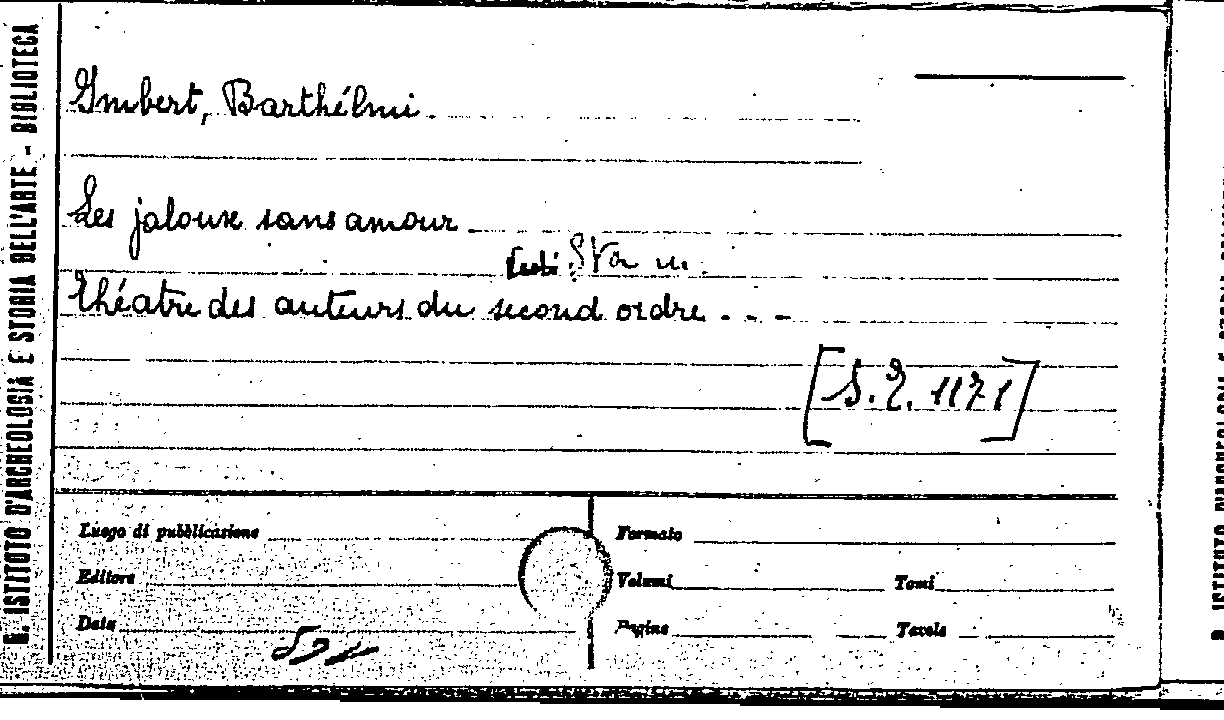 R. ISTITUTO D'ARCHEOLOGIA E STORIA DELL'ARTE - BIBLIOTECA
Imbert, Barthélmi.
Les jaloux sans amour
Théatre des auteurs du second ordre . . -
[S.T. 1171]
Luogo di pubblicazione
Editore
Data
Formato
Volumi
Tomi
Pagine
Tavole